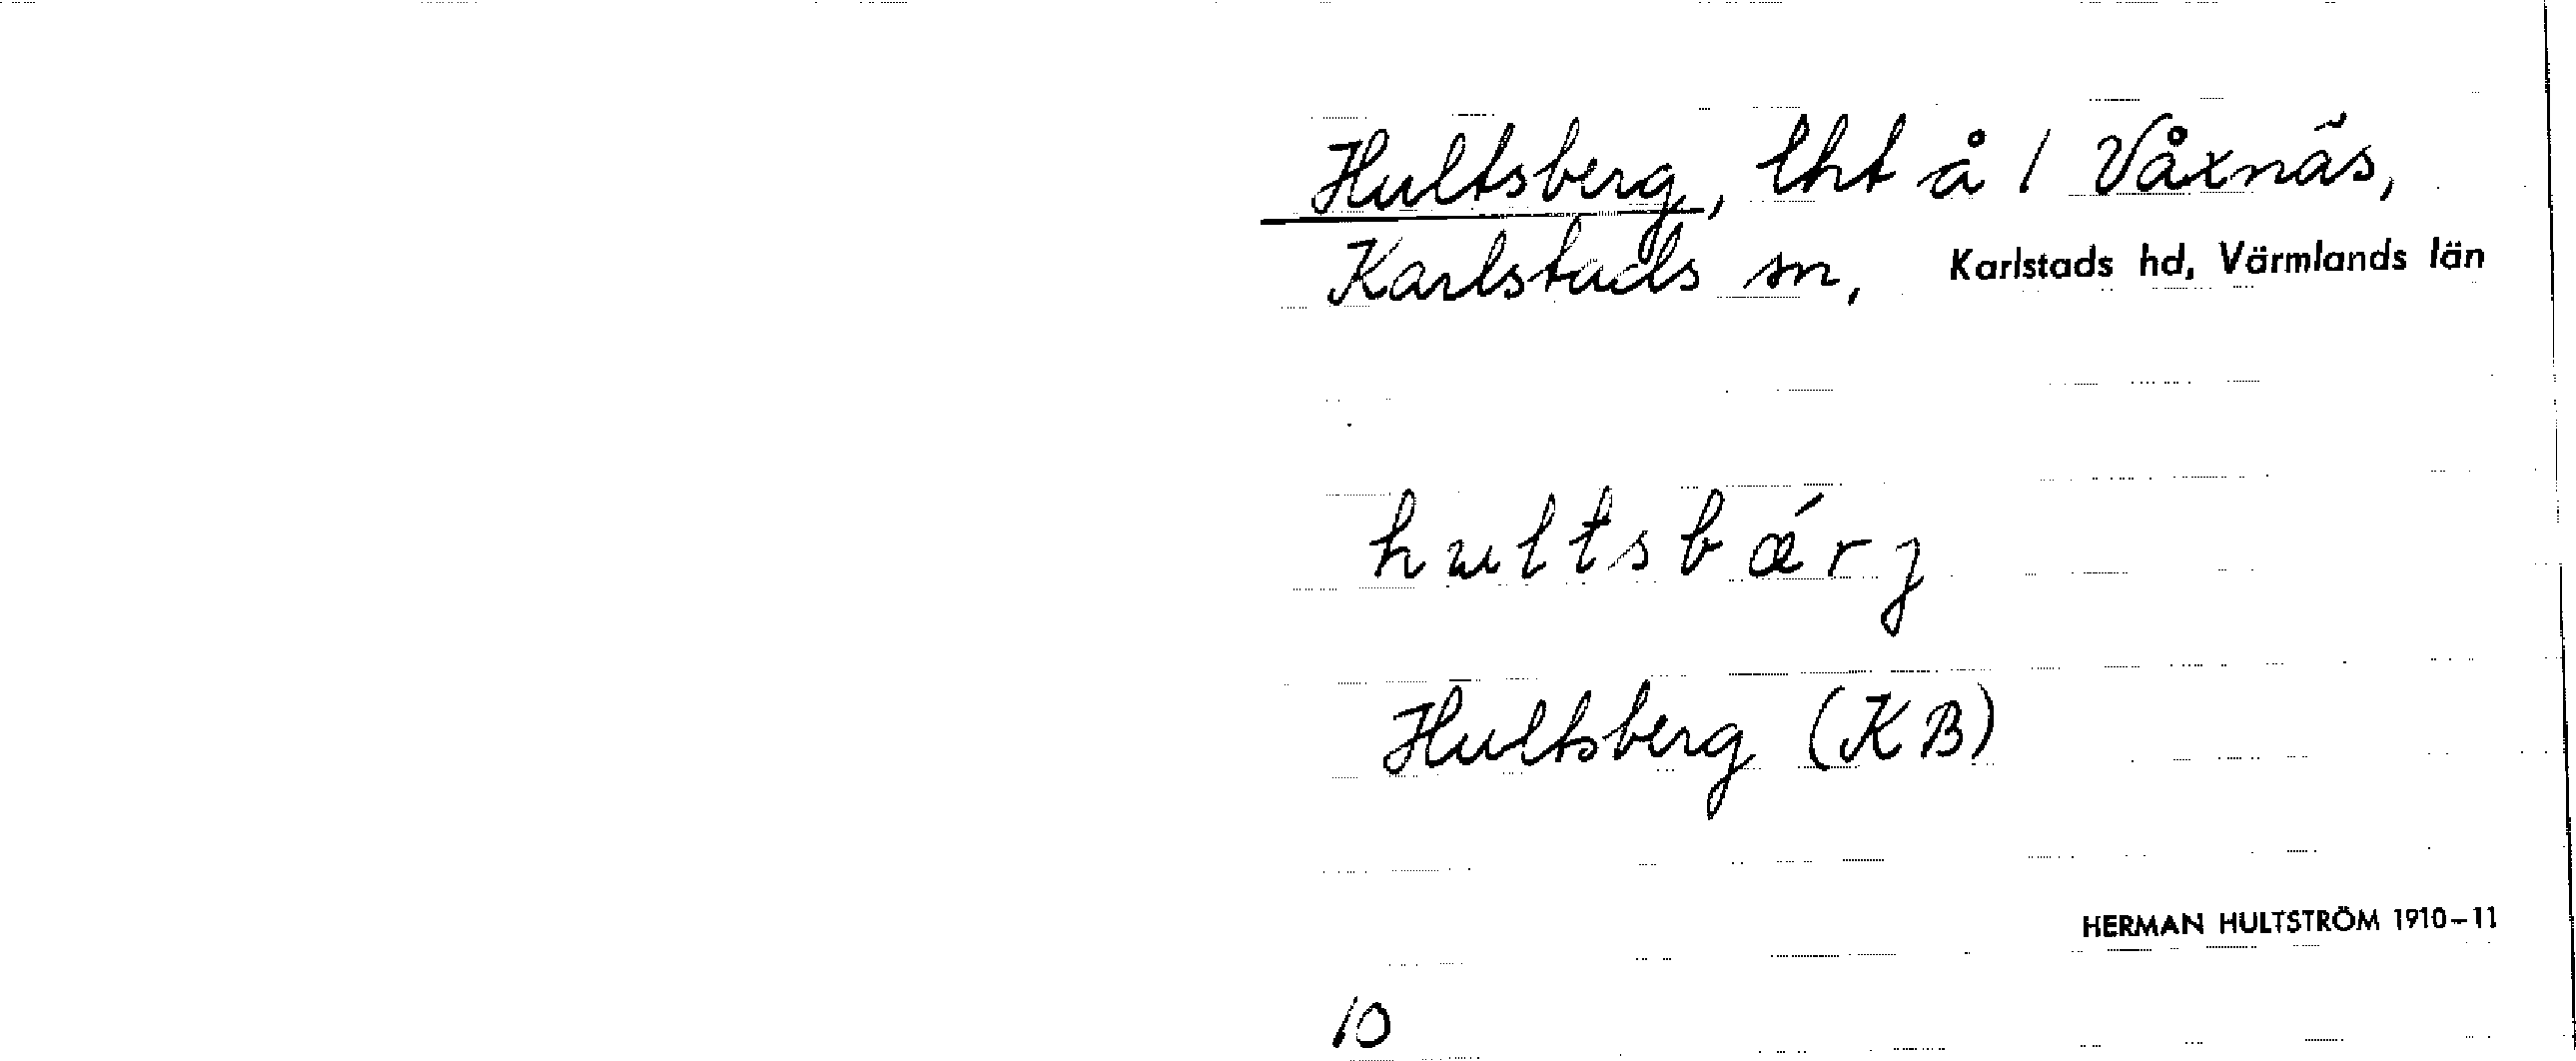 Hultsberg, lht å 1 Våxnäs,
Karlstads sn, Karlstads hd, Värmlands län
hultsbǽrj
Hultsberg (KB)
HERMAN HULTSTRÖM 1910–11
10